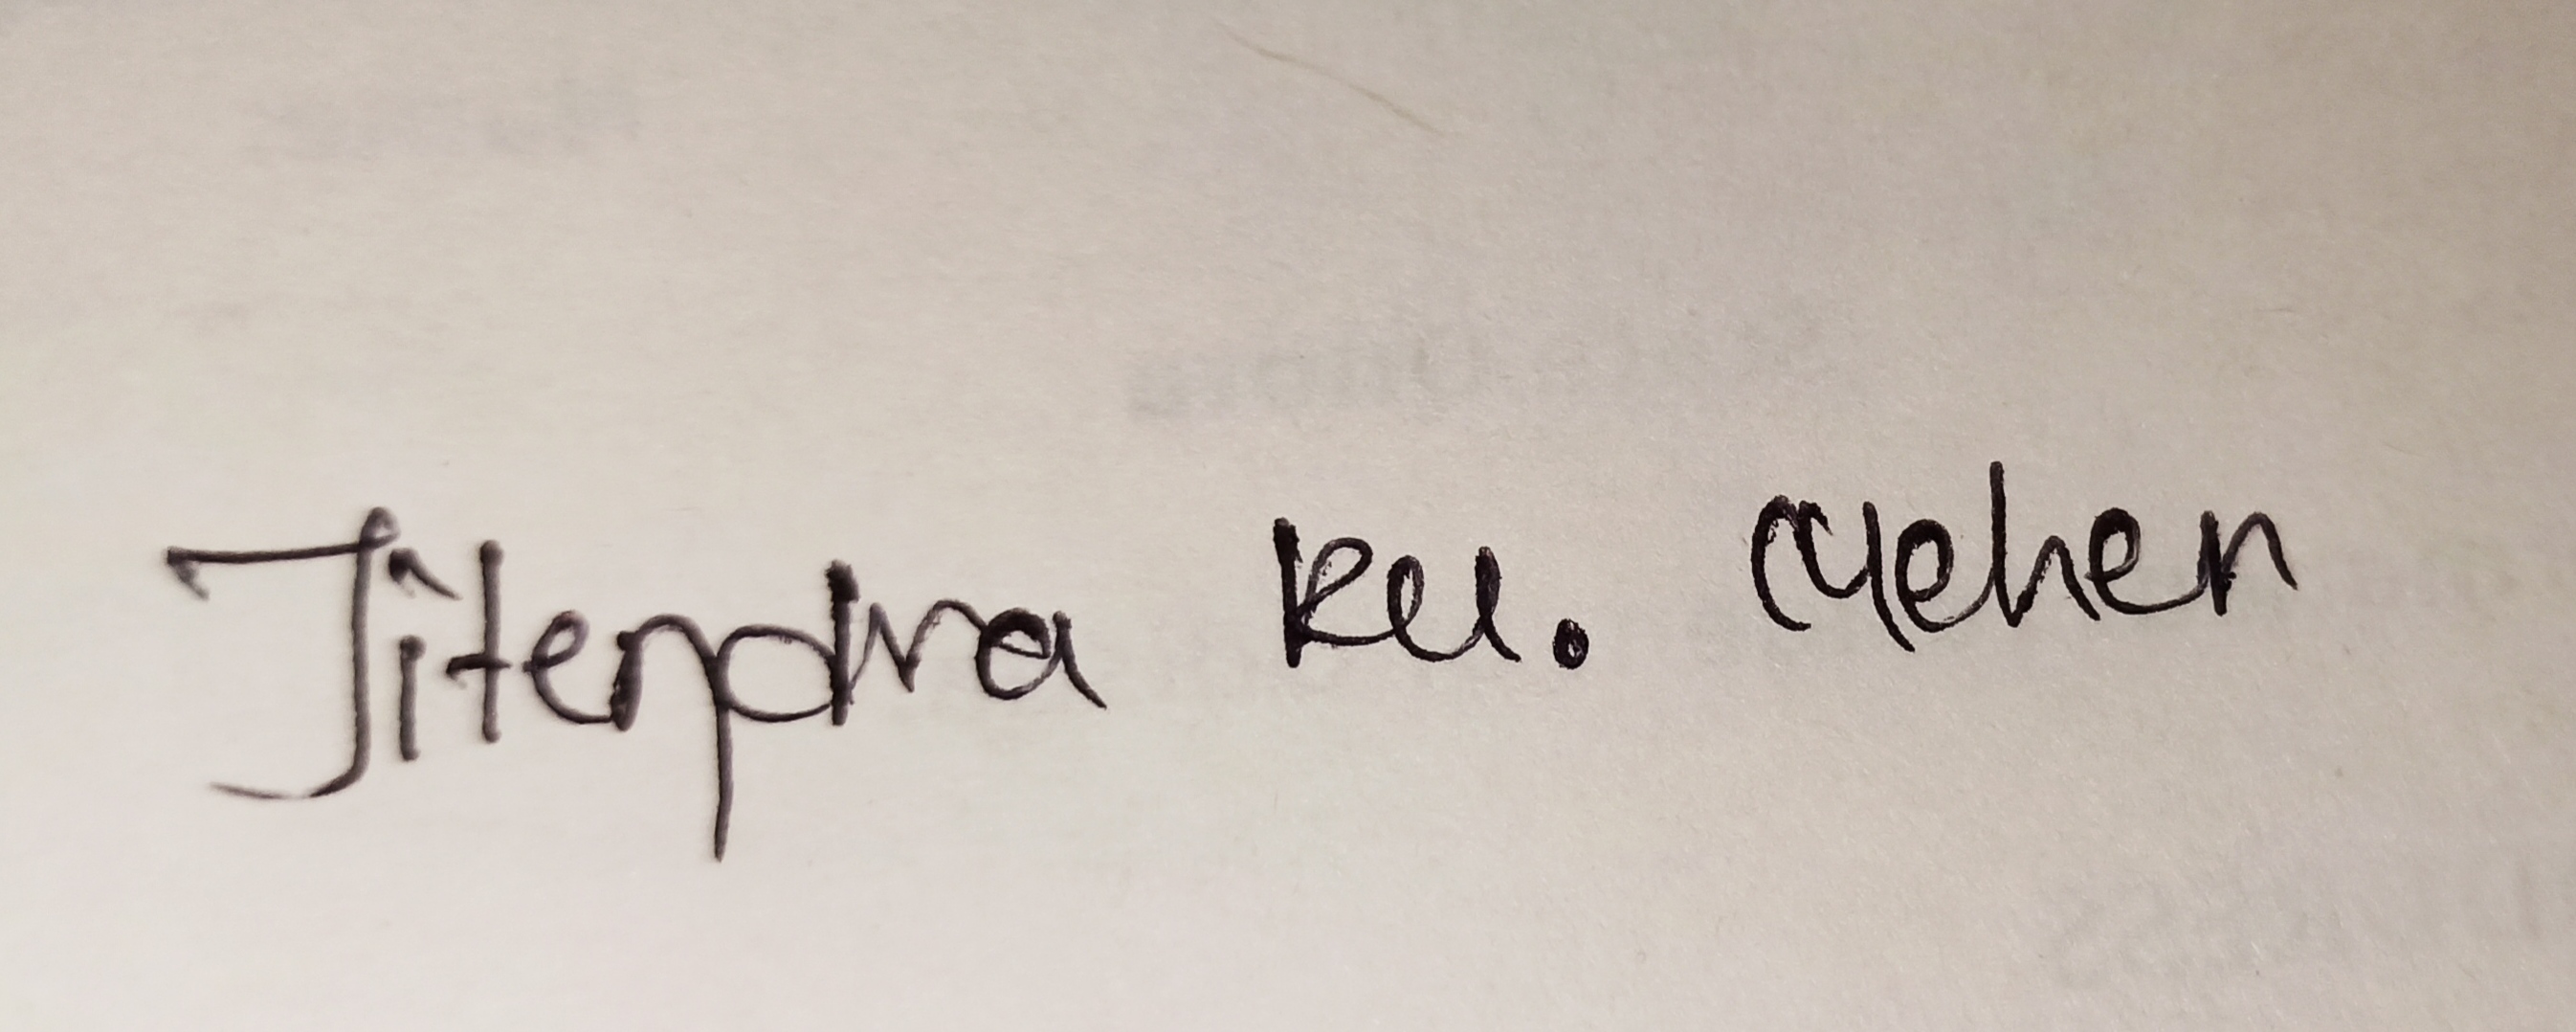 Jitendra Ku. Meher